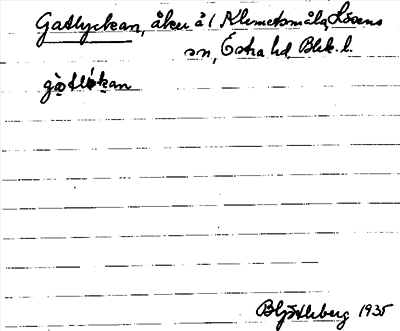 Gatlyckan, åker å 1 Klemetsmåla, Lösens
sn, Östra hd, Blek. l.
gàtlẙkan
1935